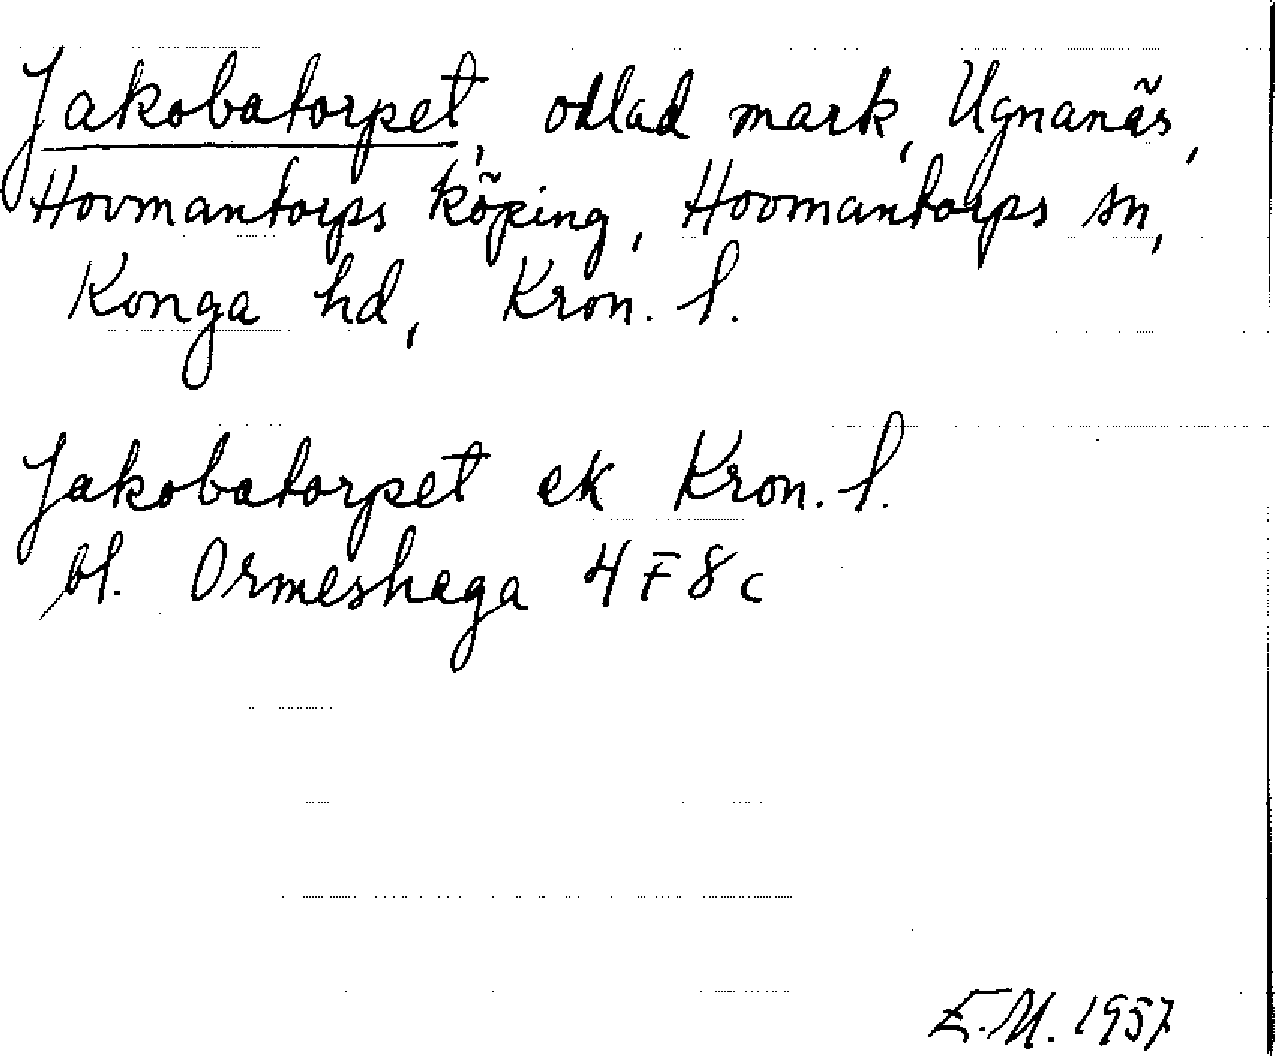 Jakobatorpet, odlad mark, Ugnanäs,
Hovmantorps köping, Hovmantorps sn,
Konga hd, Kron. l.
Jakobatorpet ek Kron. l.
bl. Ormeshaga 4F8c
E.M. 1957